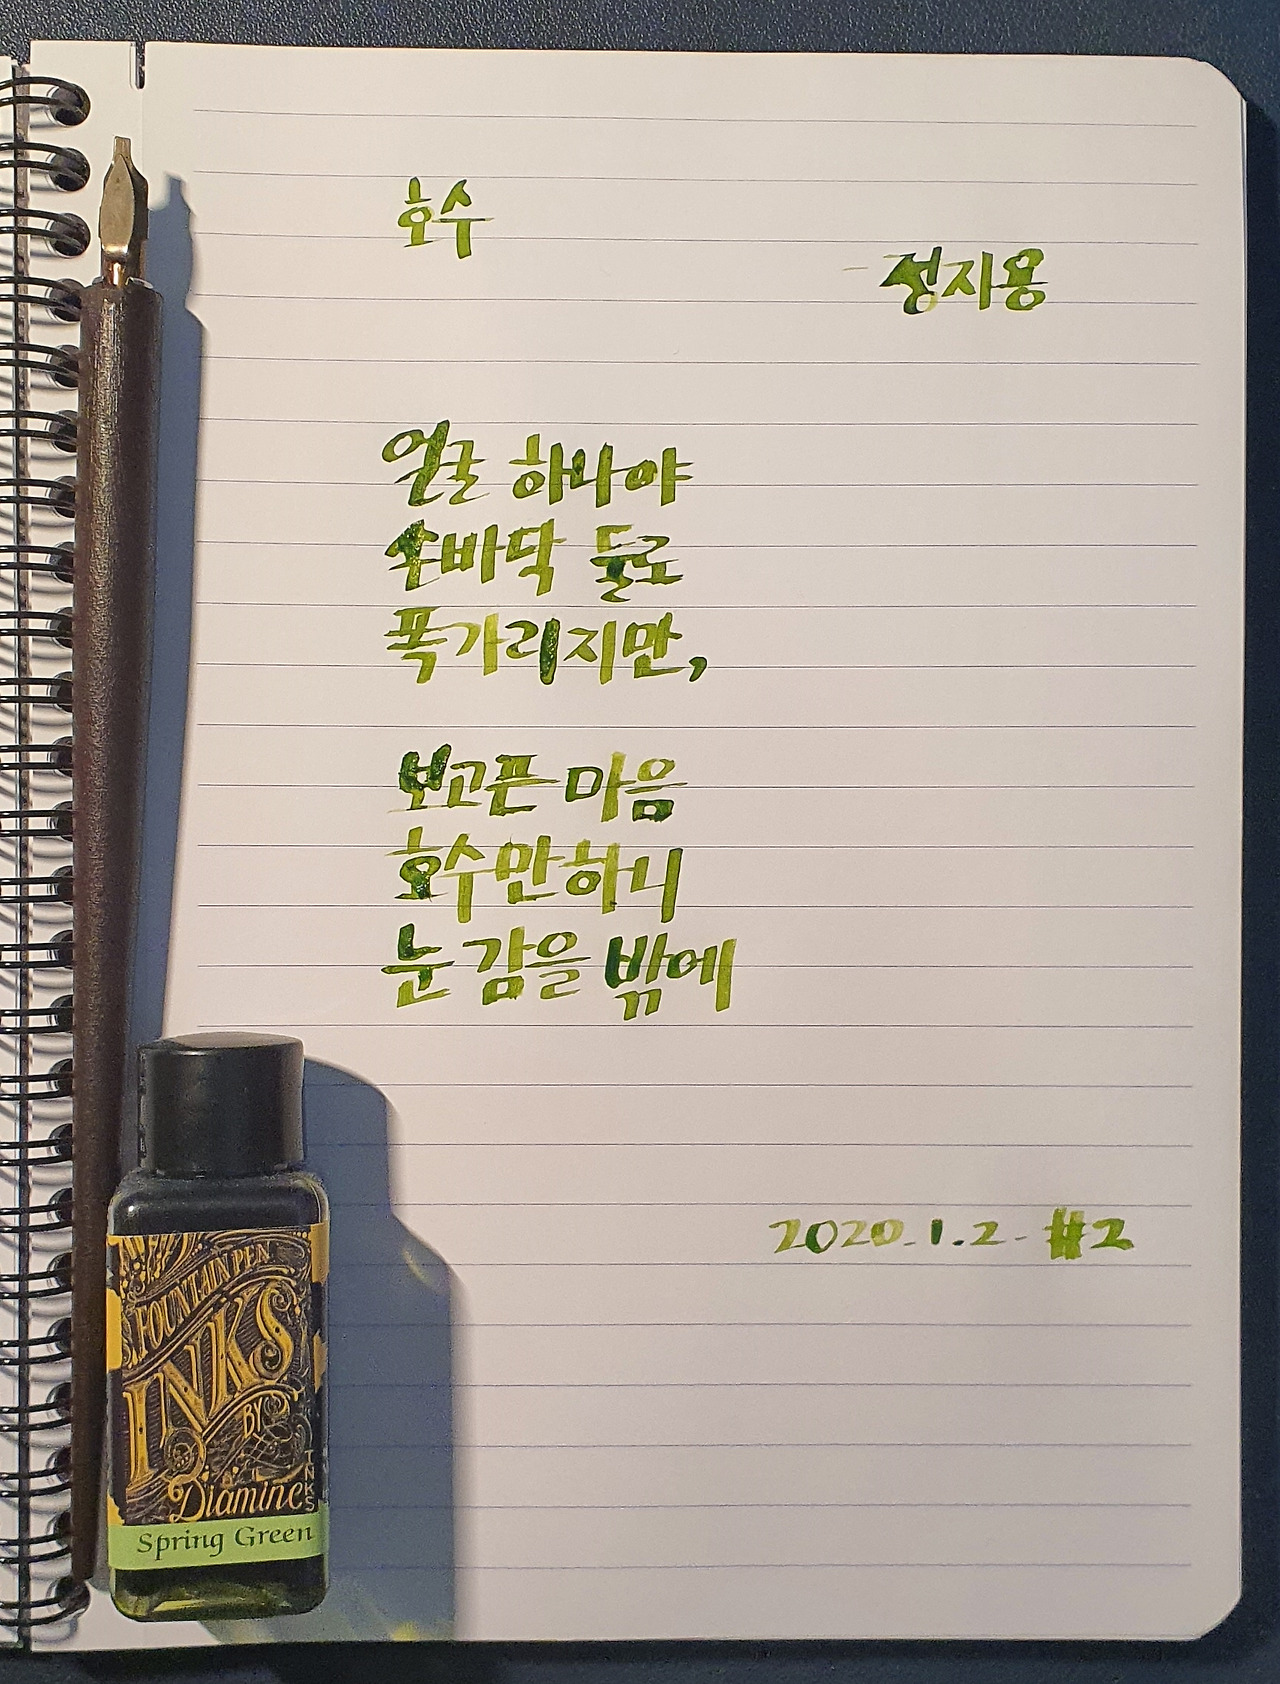 호수
- 정지용
얼굴 하나야
손바닥 둘로
폭가리지만,
보고픈 마음
호수만하니
눈 감을 밖에
2020.1.2. #2
FOUNTAIN PEN
INKS
BY
Diamine
INKS
Spring Green